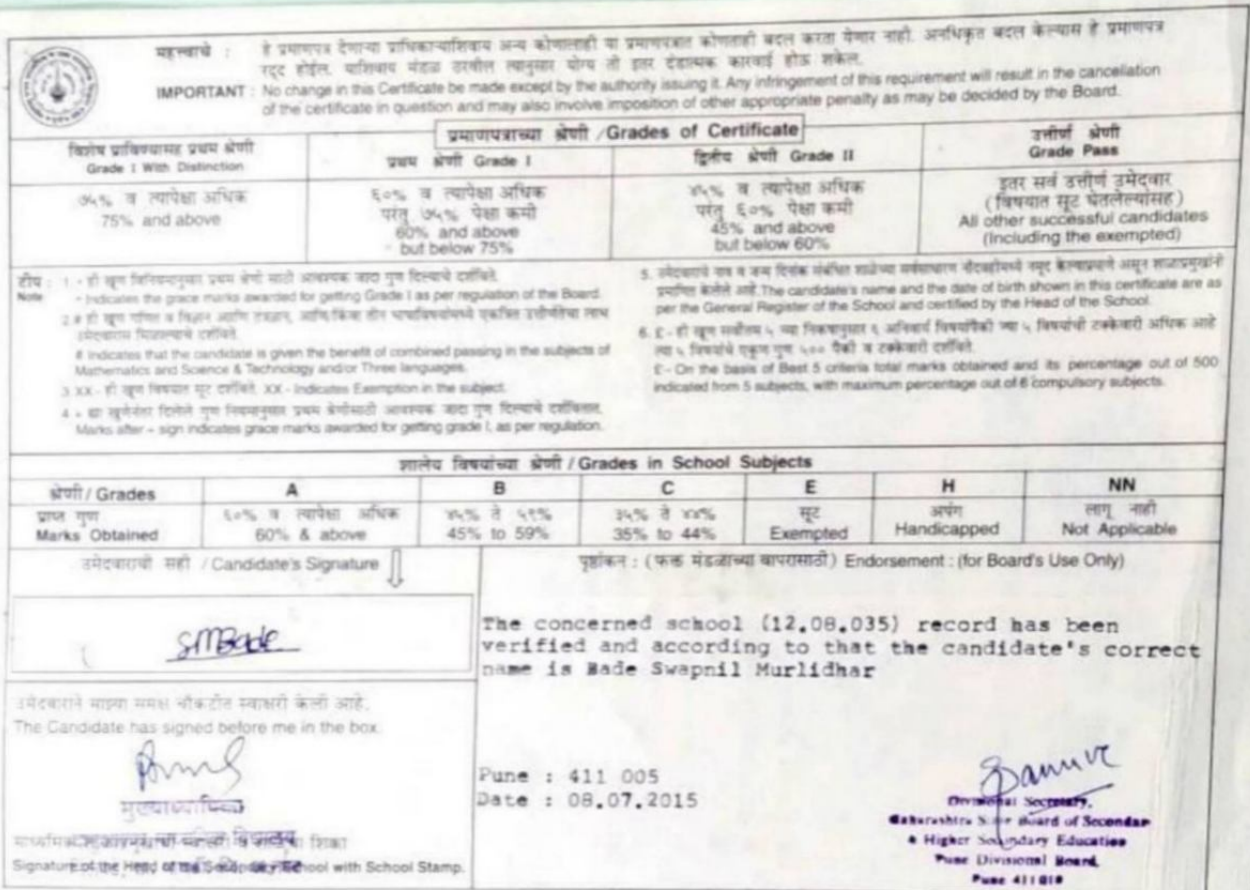 महत्त्वाचे : हे प्रमाणपत्र देणाऱ्या प्राधिकाऱ्याशिवाय अन्य कोणालाही या प्रमाणपत्रात कोणताही बदल करता येणार नाही. अनधिकृत बदल केल्यास हे प्रमाणपत्र
रद्द होईल. याशिवाय मंडळ ठरवील त्यानुसार योग्य ती इतर दंडात्मक कारवाई होऊ शकेल.
IMPORTANT : No change in this Certificate be made except by the authority issuing it. Any infringement of this requirement will result in the cancellation
of the certificate in question and may also involve imposition of other appropriate penalty as may be decided by the Board.
प्रमाणपत्राच्या श्रेणी / Grades of Certificate
विशेष प्राविण्यासह प्रथम श्रेणी
Grade I With Distinction
प्रथम श्रेणी Grade I
द्वितीय श्रेणी Grade II
उत्तीर्ण श्रेणी
Grade Pass
७५% व त्यापेक्षा अधिक
75% and above
६०% व त्यापेक्षा अधिक
परंतु ७५% पेक्षा कमी
60% and above
but below 75%
४५% व त्यापेक्षा अधिक
परंतु ६०% पेक्षा कमी
45% and above
but below 60%
इतर सर्व उत्तीर्ण उमेदवार
(विषयात सूट घेतलेल्यांसह)
All other successful candidates
(Including the exempted)
टीप : 1. - ही खूण विनियमानुसार प्रथम श्रेणी साठी आवश्यक जादा गुण दिल्याचे दर्शविते.
Note - Indicates the grace marks awarded for getting Grade I as per regulation of the Board.
2.# ही खूण गणित व विज्ञान आणि तंत्रज्ञान, आणि/किंवा तीन भाषाविषयांमध्ये एकत्रित उत्तीर्णतेचा लाभ
उमेदवारास मिळाल्याचे दर्शविते.
# Indicates that the candidate is given the benefit of combined passing in the subjects of
Mathematics and Science & Technology and/or Three languages.
3. XX - ही खूण विषयात सूट दर्शविते. XX - Indicates Exemption in the subject.
4. + ह्या खुणेनंतर दिलेले गुण नियमानुसार प्रथम श्रेणीसाठी आवश्यक जादा गुण दिल्याचे दर्शवितात.
Marks after + sign indicates grace marks awarded for getting grade I, as per regulation.
5. उमेदवाराचे नाव व जन्म दिनांक संबंधित शाळेच्या सर्वसाधारण नोंदवहीमध्ये नमूद केल्याप्रमाणे असून शाळाप्रमुखांनी
प्रमाणित केलेले आहे. The candidate's name and the date of birth shown in this certificate are as
per the General Register of the School and certified by the Head of the School.
6. £ - ही खूण सर्वोत्तम ५ च्या निकषानुसार ६ अनिवार्य विषयांपैकी ज्या ५ विषयांची टक्केवारी अधिक आहे
त्या ५ विषयांचे एकूण गुण ५०० पैकी व टक्केवारी दर्शविते.
£ - On the basis of Best 5 criteria total marks obtained and its percentage out of 500
indicated from 5 subjects, with maximum percentage out of 6 compulsory subjects.
शालेय विषयांच्या श्रेणी / Grades in School Subjects
श्रेणी / Grades A B C E H NN
प्राप्त गुण ६०% व त्यापेक्षा अधिक ४५% ते ५९% ३५% ते ४४% सूट अपंग लागू नाही
Marks Obtained 60% & above 45% to 59% 35% to 44% Exempted Handicapped Not Applicable
उमेदवाराची सही / Candidate's Signature
SMBade
उमेदवाराने माझ्या समक्ष चौकटीत स्वाक्षरी केली आहे.
The Candidate has signed before me in the box.
मुख्याध्यापिका
Signature of the Head of the Secondary School with School Stamp.
पृष्ठांकन : (फक्त मंडळाच्या वापरासाठी) Endorsement : (for Board's Use Only)
The concerned school (12.08.035) record has been
verified and according to that the candidate's correct
name is Bade Swapnil Murlidhar
Pune : 411 005
Date : 08.07.2015
Divisional Secretary,
Maharashtra State Board of Secondar
& Higher Secondary Education
Pune Divisional Board,
Pune 411010